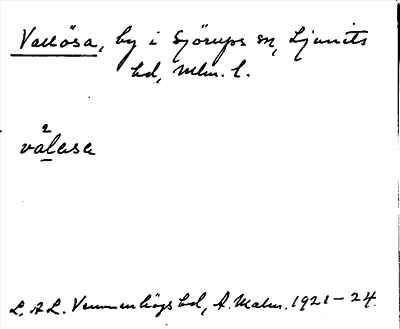 Vallösa, by i Sjörups sn, Ljunits
hd, Mlm. l.
2
valasa
L. A L. Vemmenhögs hd, A. Malm. 1921-24.